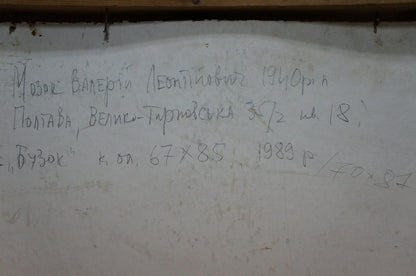 Мозок Валерій Леонтійович 1940 р н
Полтава, Велико-Тирновська 35/2 кв. 18,
"Бузок" к. ол. 67×85, 1989 р /70×87